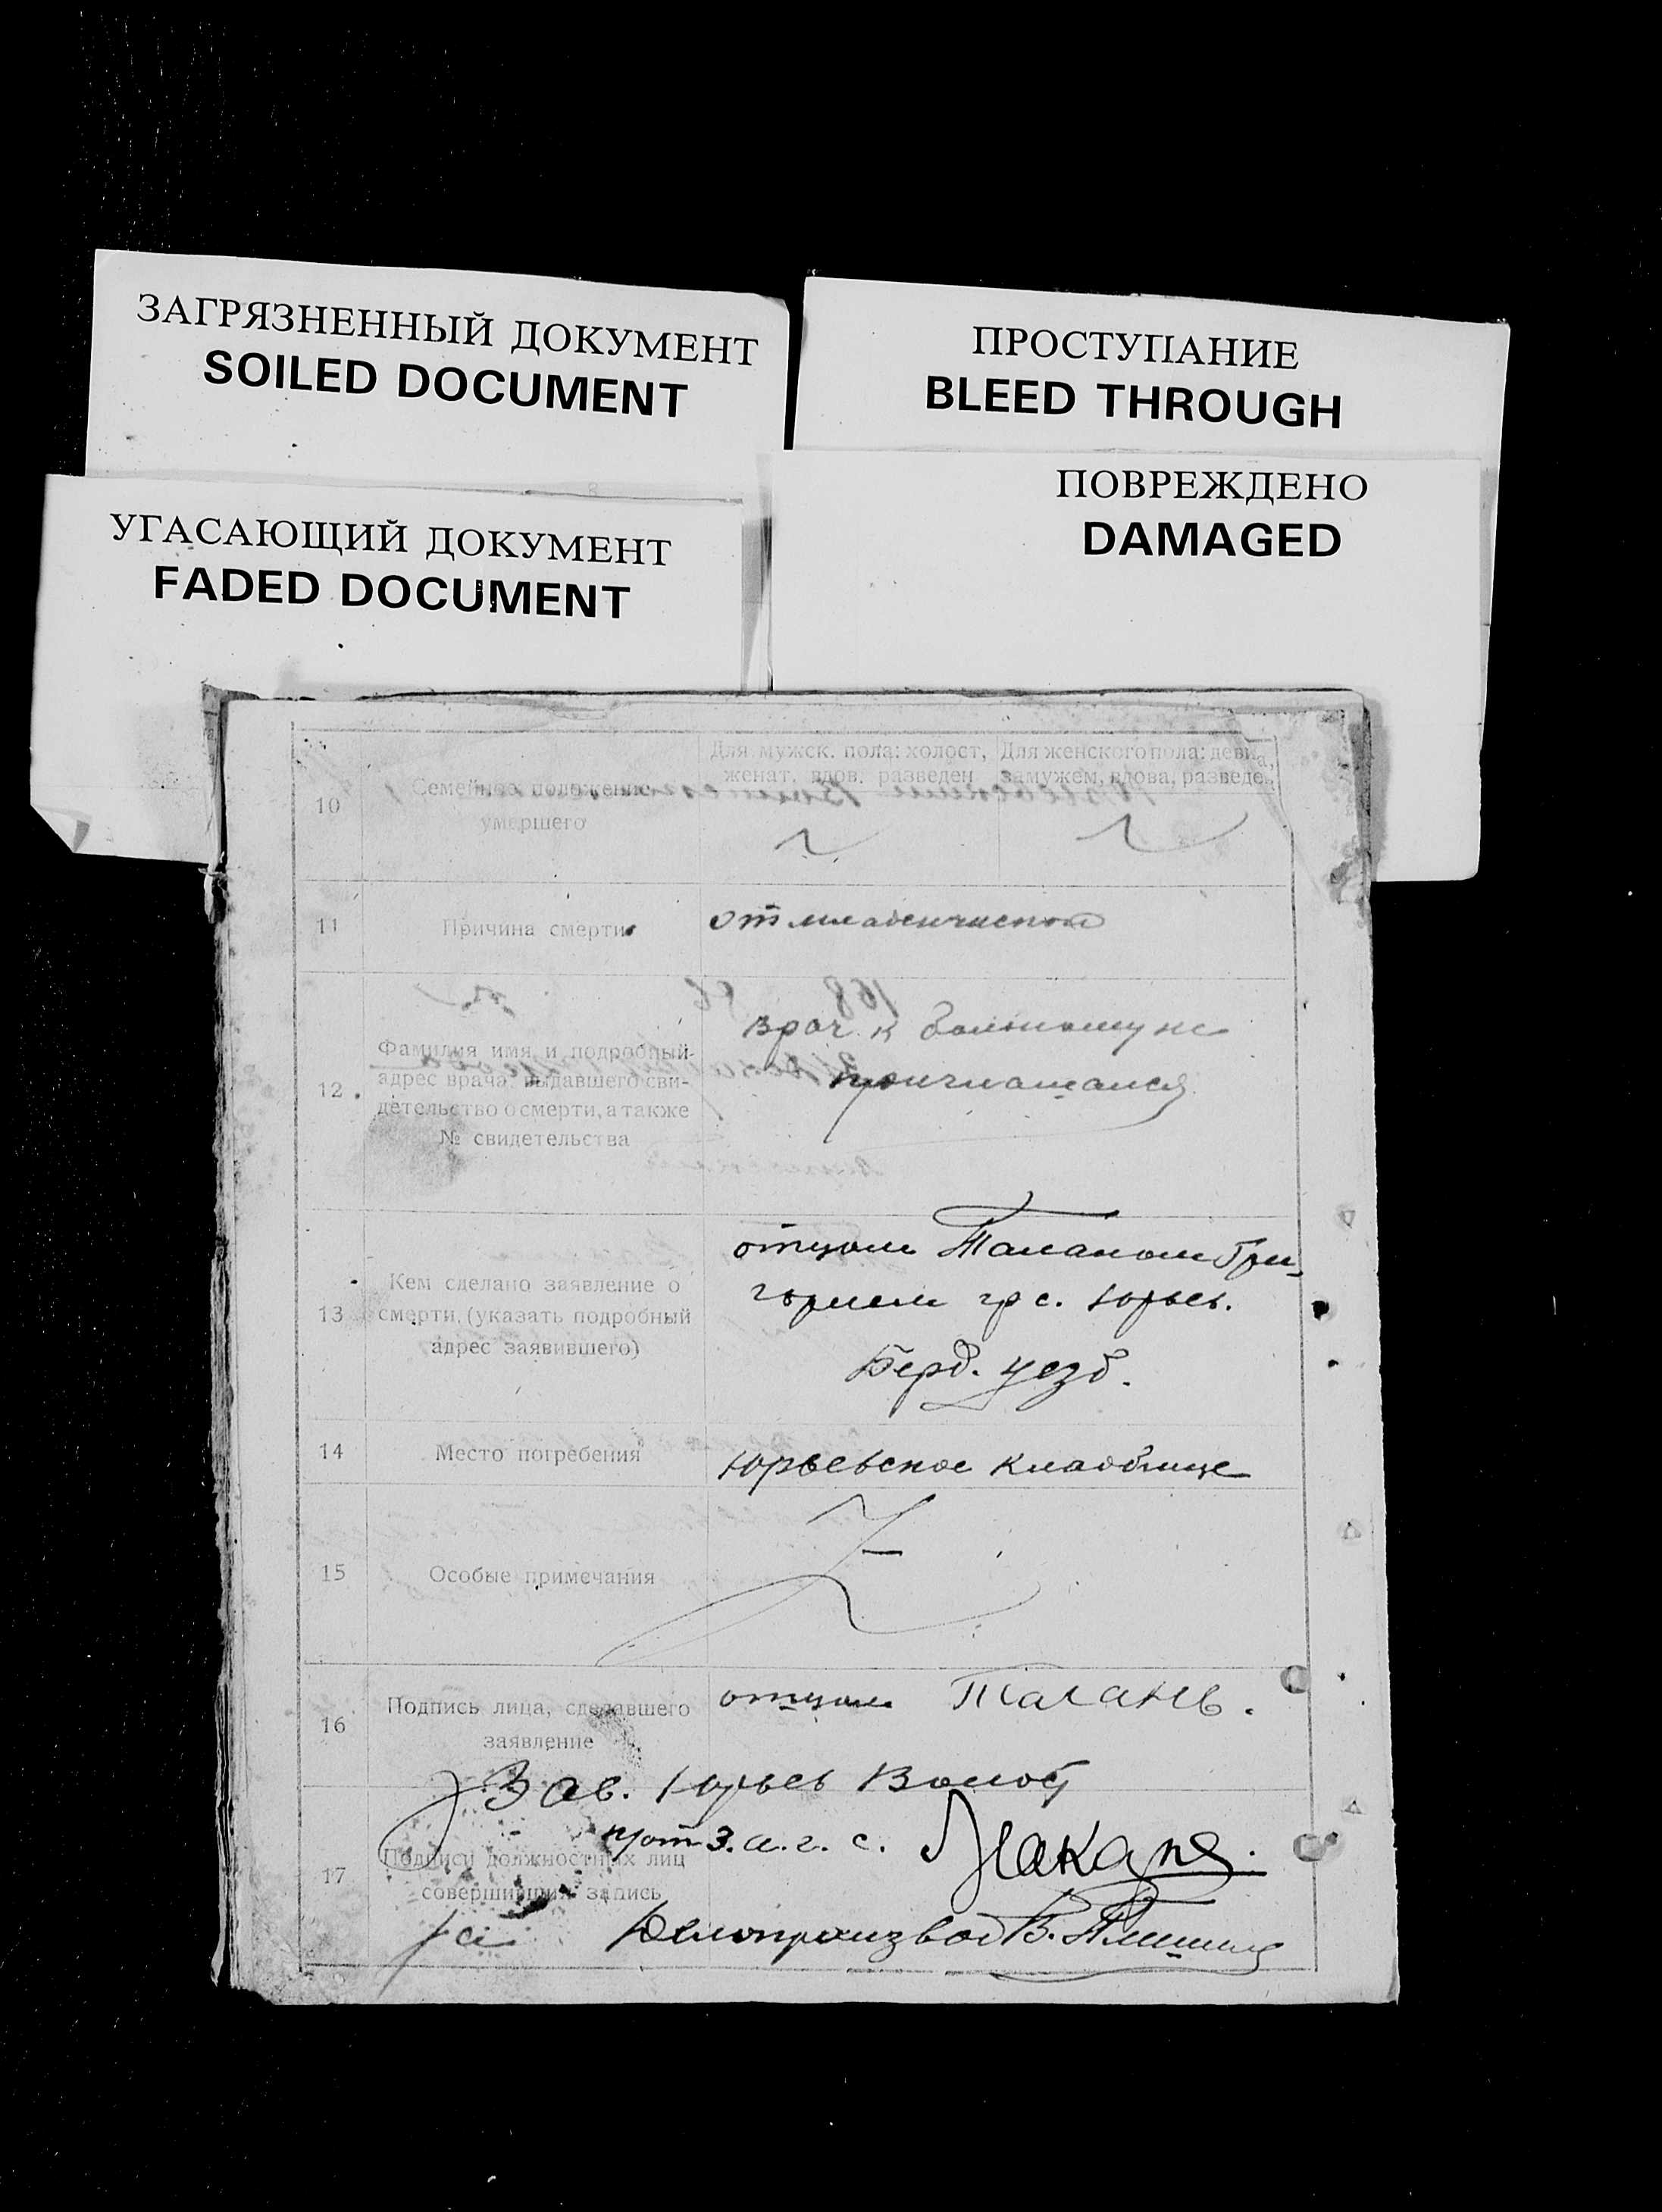 ЗАГРЯЗНЕННЫЙ ДОКУМЕНТ
SOILED DOCUMENT
ПРОСТУПАНИЕ
BLEED THROUGH
УГАСАЮЩИЙ ДОКУМЕНТ
FADED DOCUMENT
ПОВРЕЖДЕНО
DAMAGED
10
Семейное положение
умершего
Для мужск. пола: холост,
женат, вдов, разведен
Для женского пола: девица,
замужем, вдова, разведе
11
Причина смерти
от младенческой
12
Фамилия имя и подробный
адрес врача, выдавшего сви-
детельство о смерти, а также
№ свидетельства
врач к больному не
приглашался
13
Кем сделано заявление о
смерти, (указать подробный
адрес заявившего)
отцом Таганом Гри
горием гр с. Юрьев.
Берд. уезд.
14
Место погребения
Юрьевское кладбище
15
Особые примечания
16
Подпись лица, сделавшего
заявление
отцом Таганъ.
Зав. Юрьев Волост
17
Подписи должностных лиц
совершивших запись
З.а.г.с.
Делопроизвод В.